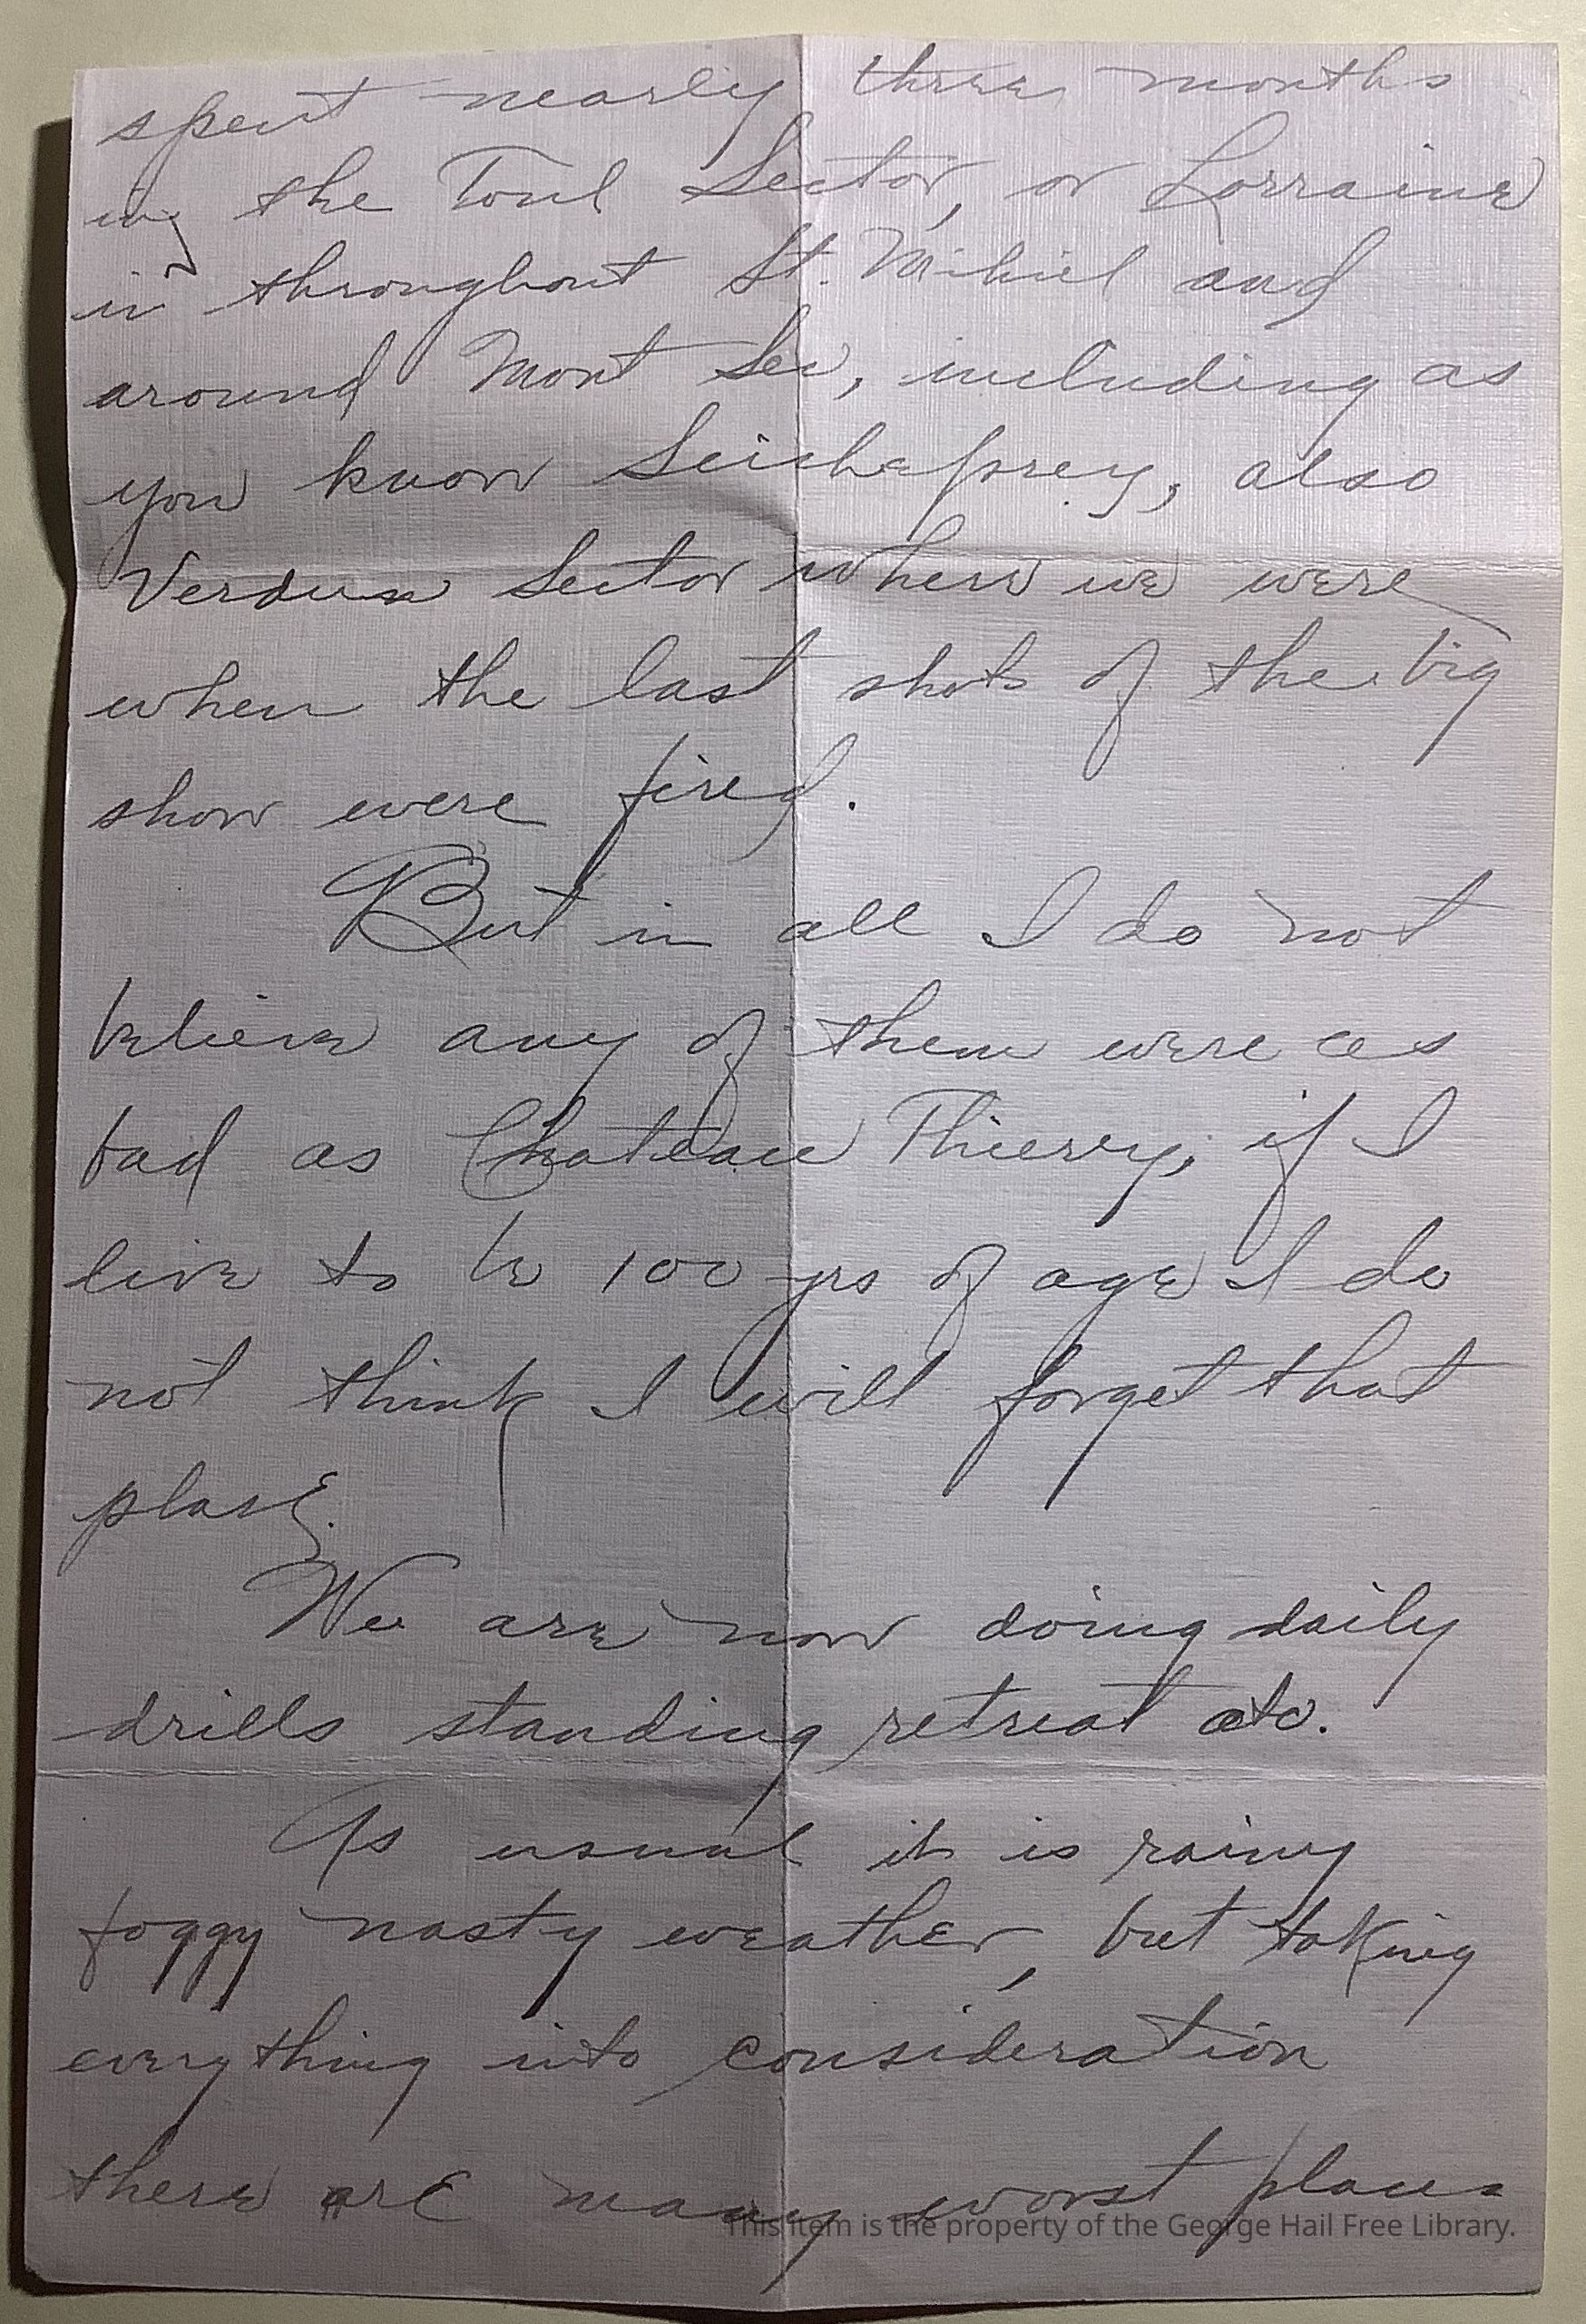 spent nearly three months
in the Toul Sector, or Lorraine
in throughout St. Mihiel and
around Mont Sec, including as
you know Seicheprey, also
Verdun Sector where we were
when the last shots of the big
show were fired.
But in all I do not
believe any of them were as
bad as Chateau Thierry, if I
live to be 100 yrs of age I do
not think I will forget that
place.
We are now doing daily
drills standing retreat etc.
As usual it is rainy
foggy nasty weather, but taking
everything into consideration
there are many worst places
This item is the property of the George Hail Free Library.